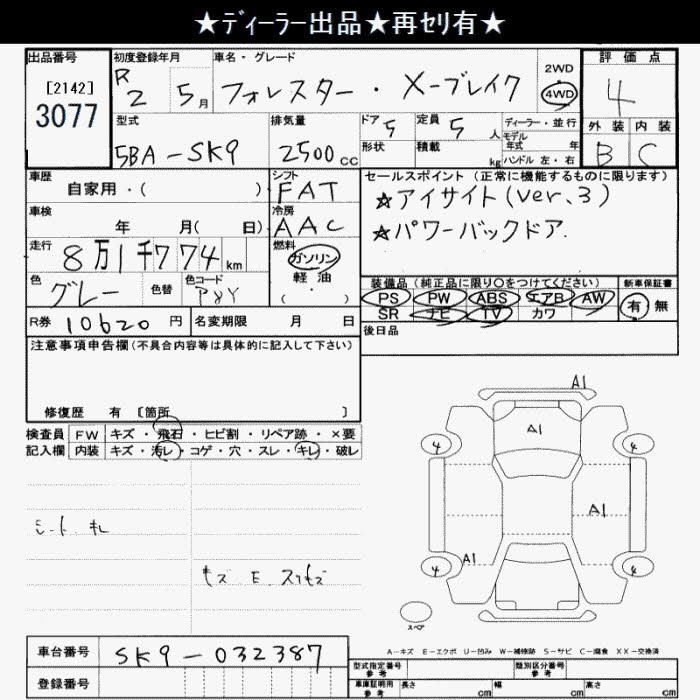 ★ディーラー出品★再セリ有★
出品番号
[2142]
3077
初度登録年月
R2 5月
車名・グレード
フォレスター・X-ブレイク
2WD
4WD
評価点
4
外装 内装
B C
型式
5BA-SK9
排気量
2500CC
ドア 5
形状
定員 5人
積載 kg
ディーラー・並行
モデル年式 年
ハンドル 左・右
車歴
自家用・( )
シフト
FAT
セールスポイント(正常に機能するものに限ります)
☆アイサイト(ver.3)
☆パワーバックドア.
車検
年 月( 日)
冷房
AAC
走行
8万1千774km
燃料
ガソリン
軽油
( ・ )
色
グレー
色替
色コード
装備品(純正品に限り○をつけてください)
PS PW ABS エアB AW
SR ナビ TV カワ
新車保証書
有 無
R券 10620円
名変期限 月 日
後日品
注意事項申告欄(不具合内容等は具体的に記入して下さい)
修復歴 有 [箇所 ]
検査員記入欄
FW キズ・飛石・ヒビ割・リペア跡・×要
内装 キズ・汚レ・コゲ・穴・スレ・キレ・破レ
シート キレ
キズ E スリキズ
A1
A1
4 4
A1
A1
4 4
スペア
A-キズ E-エクボ U-凹み W-補修跡 S-サビ C-腐食 XX-交換済
車台番号 SK9-032387
登録番号
型式指定番号 参考
類別区分番号 参考
車庫証明用 参考 長さ cm 幅 cm 高さ cm